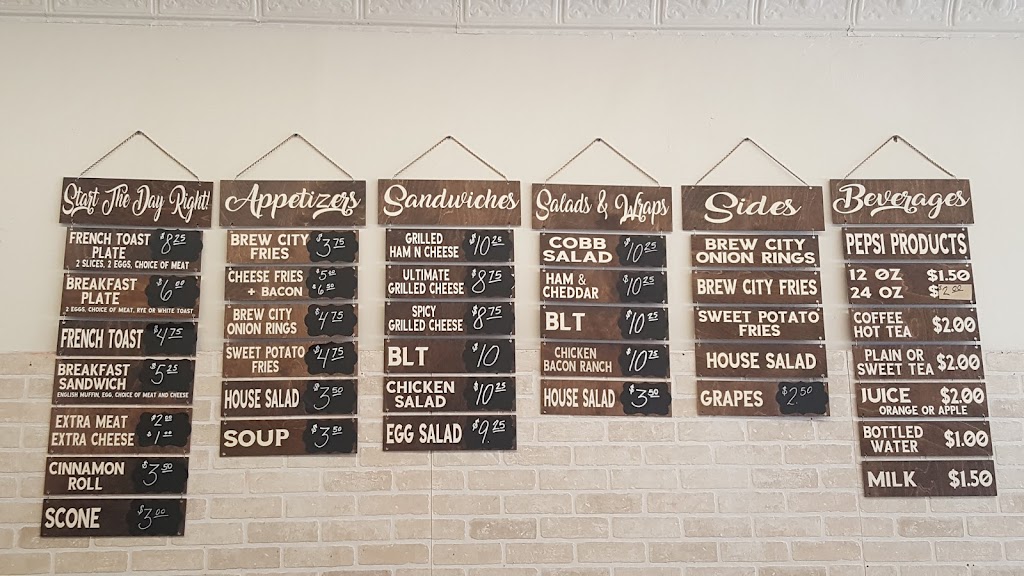 Start The Day Right!
FRENCH TOAST
PLATE
$8.25
2 SLICES, 2 EGGS, CHOICE OF MEAT
BREAKFAST
PLATE
$6.00
2 EGGS, CHOICE OF MEAT, RYE OR WHITE TOAST
FRENCH TOAST $4.75
BREAKFAST
SANDWICH
$5.25
ENGLISH MUFFIN, EGG, CHOICE OF MEAT AND CHEESE
EXTRA MEAT $2.00
EXTRA CHEESE $1.00
CINNAMON
ROLL
$3.50
SCONE $3.00
Appetizers
BREW CITY
FRIES
$3.75
CHEESE FRIES $5.50
+ BACON $6.50
BREW CITY
ONION RINGS
$4.75
SWEET POTATO
FRIES
$4.75
HOUSE SALAD $3.50
SOUP $3.50
Sandwiches
GRILLED
HAM N CHEESE
$10.25
ULTIMATE
GRILLED CHEESE
$8.75
SPICY
GRILLED CHEESE
$8.75
BLT $10
CHICKEN
SALAD
$10.25
EGG SALAD $9.25
Salads & Wraps
COBB
SALAD
$10.25
HAM &
CHEDDAR
$10.25
BLT $10.25
CHICKEN
BACON RANCH
$10.75
HOUSE SALAD $3.50
Sides
BREW CITY
ONION RINGS
BREW CITY FRIES
SWEET POTATO
FRIES
HOUSE SALAD
GRAPES $2.50
Beverages
PEPSI PRODUCTS
12 OZ $1.50
24 OZ $2.00
COFFEE
HOT TEA
$2.00
PLAIN OR
SWEET TEA
$2.00
JUICE $2.00
ORANGE OR APPLE
BOTTLED
WATER
$1.00
MILK $1.50